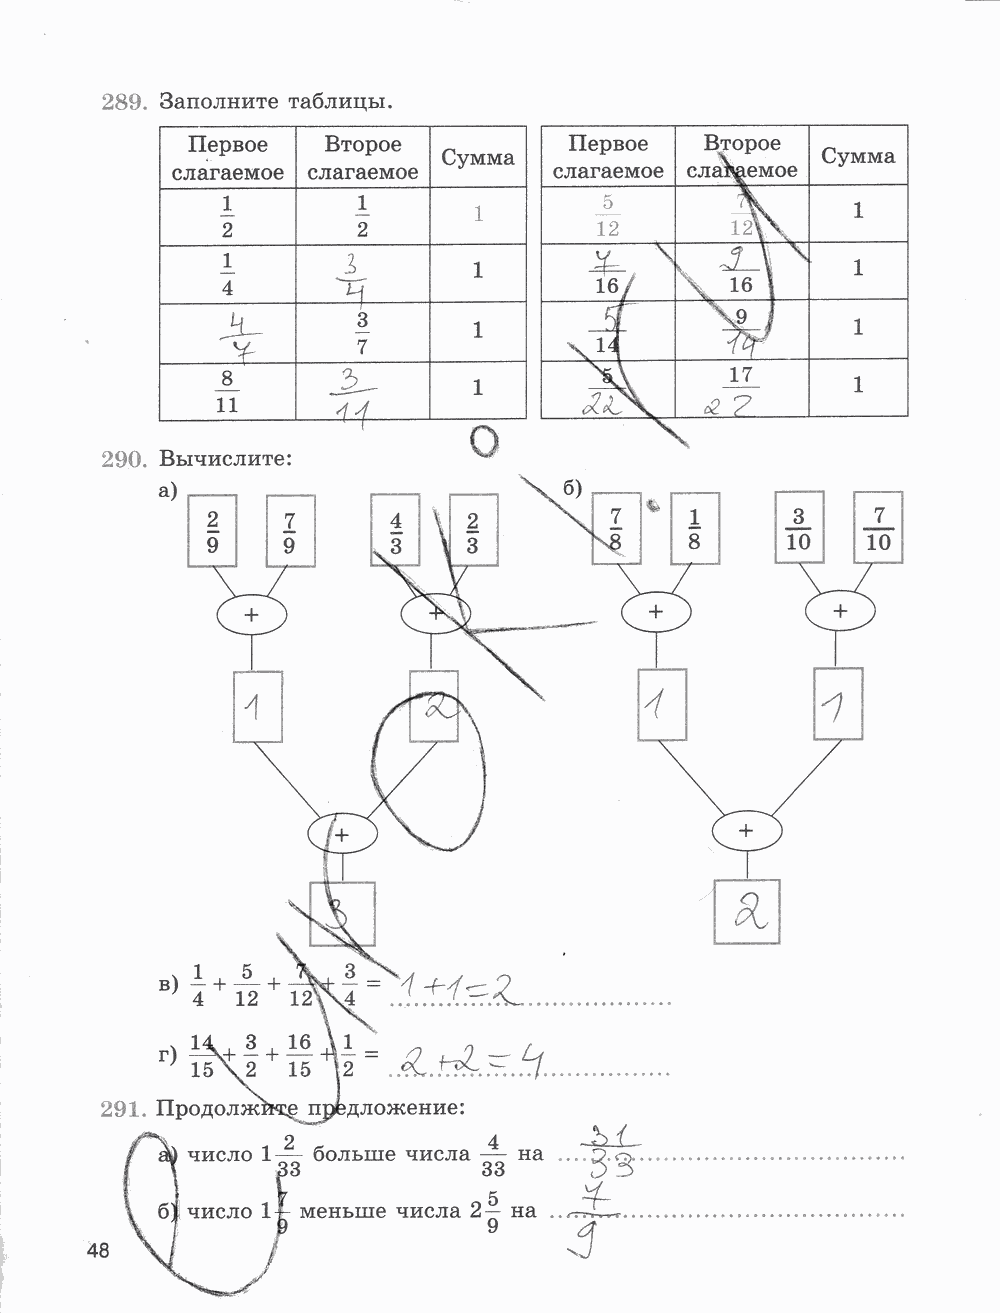 289. Заполните таблицы.
Первое слагаемое Второе слагаемое Сумма Первое слагаемое Второе слагаемое Сумма
1/2 1/2 1 5/12 7/12 1
1/4 3/4 1 7/16 9/16 1
4/7 3/7 1 5/14 9/14 1
8/11 3/11 1 5/22 17/22 1
290. Вычислите:
а) 2/9 7/9 4/3 2/3 б) 7/8 1/8 3/10 7/10
+ + + +
1 2 1 1
+ +
3 2
в) 1/4 + 5/12 + 7/12 + 3/4 = 1+1=2
г) 14/15 + 3/2 + 16/15 + 1/2 = 2+2=4
291. Продолжите предложение:
а) число 1 2/33 больше числа 4/33 на 31/33
б) число 1 7/9 меньше числа 2 5/9 на 7/9
48